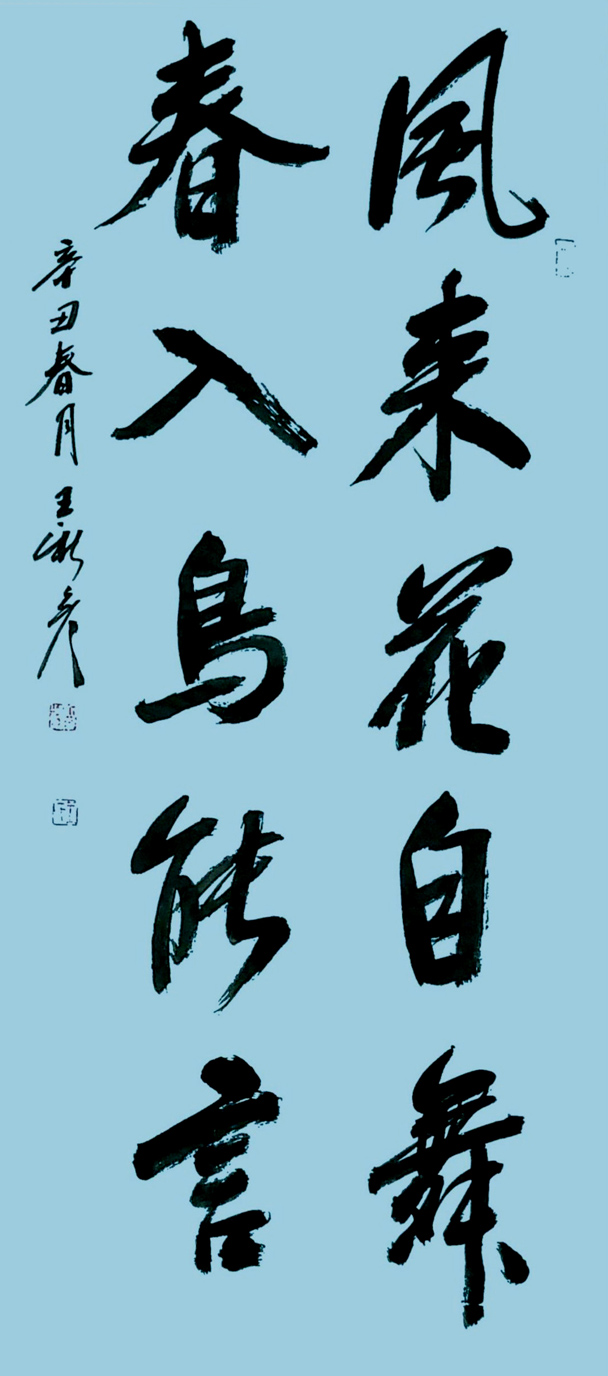 風来花自舞
春入鳥能言
辛丑春月王